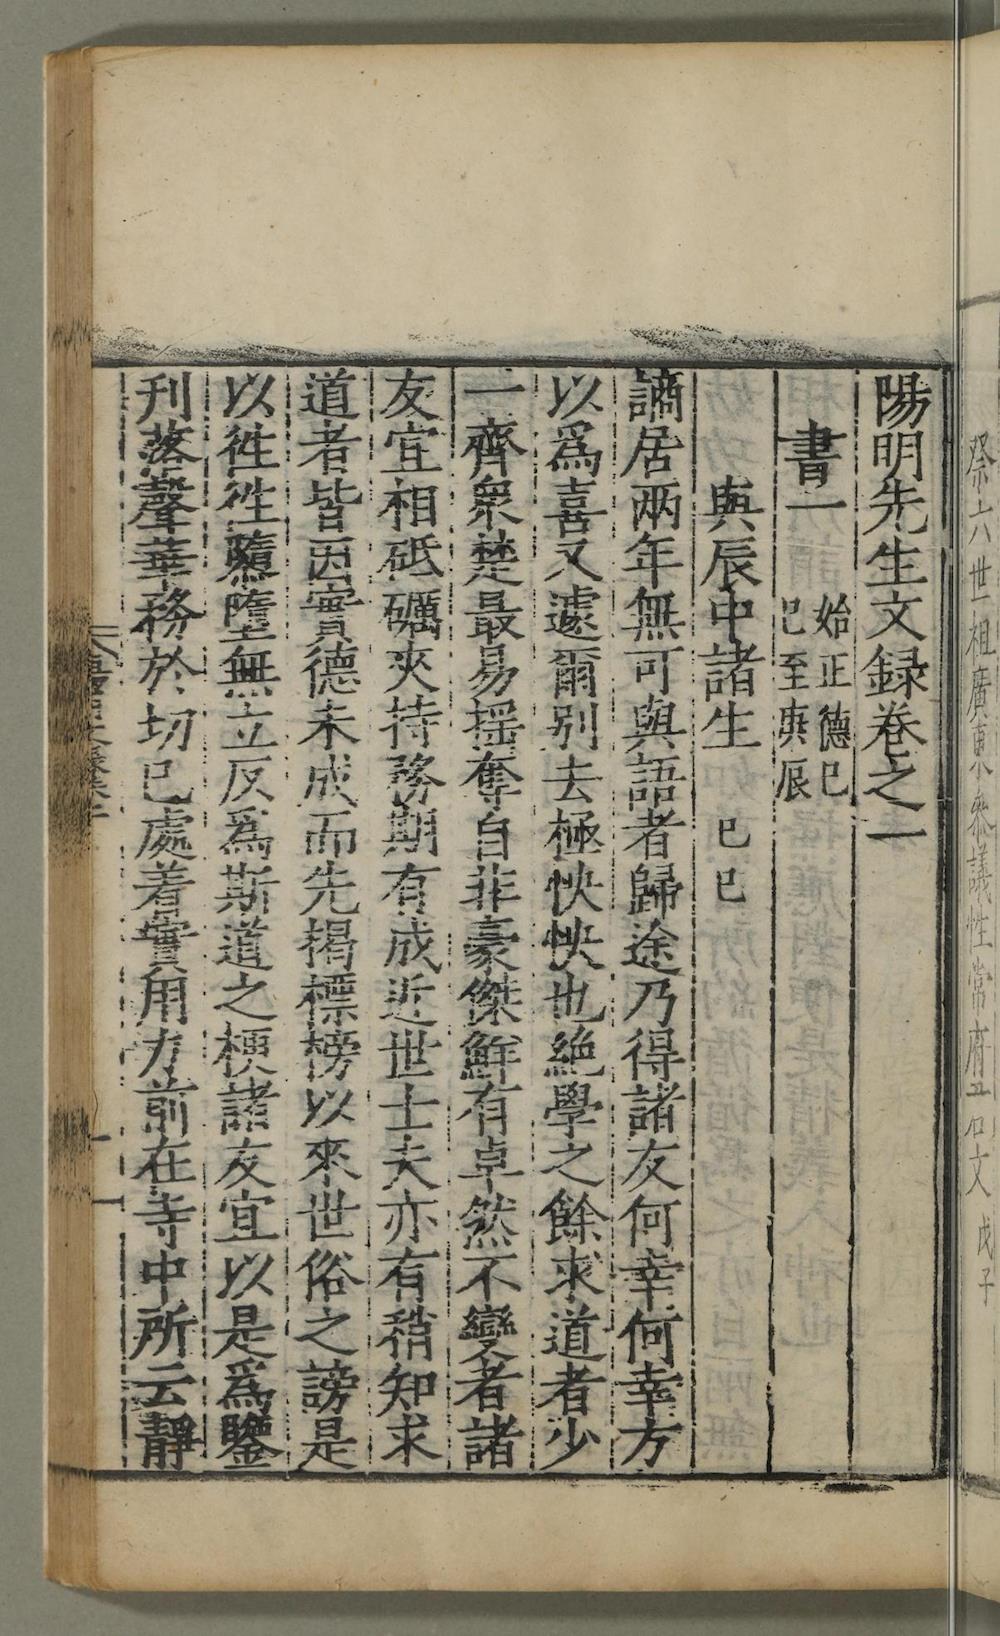 陽明先生文録卷之一
書一 始正德己巳至庚辰
與辰中諸生 己巳
謫居兩年無可與語者歸途乃得諸友何幸何幸方
以爲喜又遽爾别去極怏怏也絶學之餘求道者少
一齊衆楚最易揺奪自非豪傑鮮有卓然不變者諸
友宜相砥礪夾持務期有成近世士夫亦有稍知求
道者皆因實德未成而先揭標榜以來世俗之謗是
以徃徃隳墮無立反爲斯道之梗諸友宜以是爲鑒
刊落聲華務於切已處着實用力前在寺中所云靜